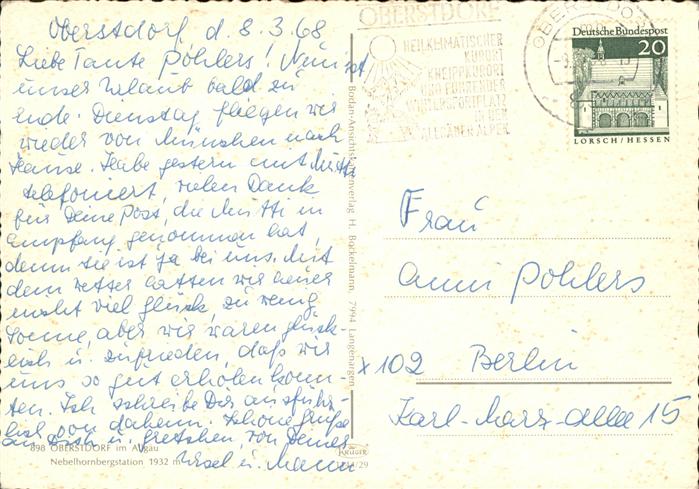 Oberstdorf d. 8.3.68
Liebe Tante Pohlers! Nun ist
unser Urlaub bald zu
ende. Dienstag fliegen wir
wieder von München nach
Hause. Habe gestern mit Mutti
telefoniert, vielen Dank
für Deine Post, die Mutti in
Empfang genommen hat,
denn sie ist ja bei uns. Mit
dem Wetter hatten wir heuer
nicht viel Glück, zu wenig
Sonne, aber wir waren glück-
lich u. zufrieden, daß wir
uns so gut erholen konn-
ten. Ich schreibe Dir ausführ-
lich von daheim. Schöne Grüße
an Dich u. Gretchen, von Deiner
Ursel u. Mann
898 OBERSTDORF im Allgäu
Nebelhornbergstation 1932 m
KRÜGER
/29
Bodan-Ansichtskartenverlag H. Bockelmann, 7994 Langenargen
OBERSTDORF
HEILKLIMATISCHER
KURORT
KNEIPPKURORT
UND FÜHRENDER
WINTERSPORTPLATZ
IN DEN
ALLGÄUER ALPEN
OBERSTDORF
Deutsche Bundespost
20
LORSCH/HESSEN
Frau
Anni Pohlers
X 102 Berlin
Karl-Marx-Allee 15